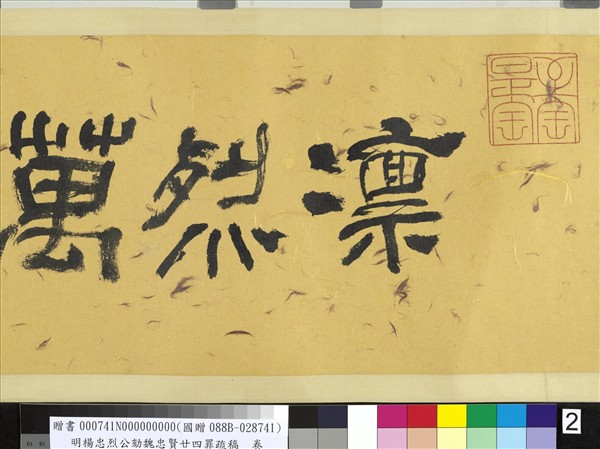 凜烈萬
贈書 000741N000000000(國贈 088B-028741)
明楊忠烈公劾魏忠賢廿四罪疏稿　卷
2